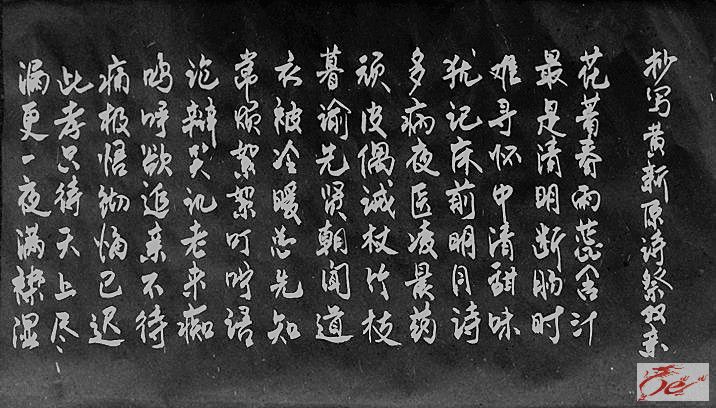 抄写黄新原诗祭双亲
花萼春雨蕊含汁
最是清明断肠时
难寻怀中清甜味
犹记床前明月诗
多病夜医凌晨药
顽皮偶诫杖竹枝
暮谕先贤朝闻道
衣被冷暖总先知
常烦絮絮叮咛语
论辩笑讥老来痴
呜呼欲追亲不待
痛极悟彻恸已迟
此孝只待天上尽
漏更一夜满襟湿